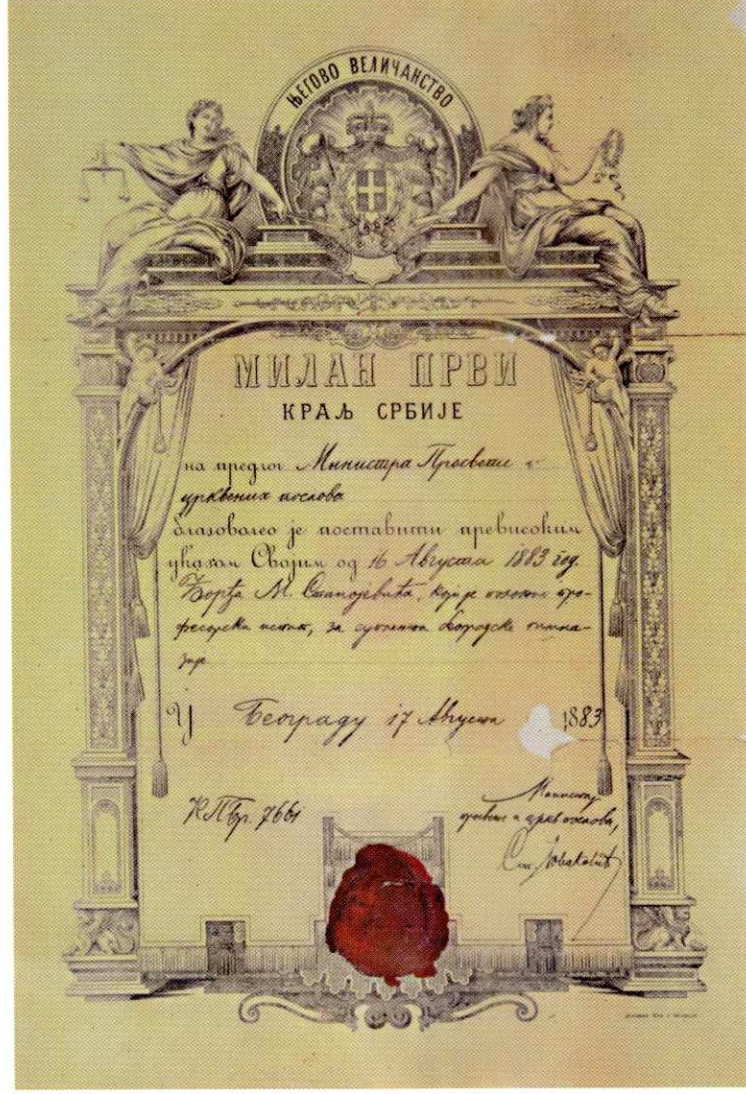 ЊЕГОВО ВЕЛИЧАНСТВО
МИЛАН ПРВИ
КРАЉ СРБИЈЕ
на предлог Министра Просвете и
црквених послова
благоволео је поставити превисоким
указом Својим од 16 Августа 1883 год.
Ђорђа М. Станојевића, који је положио про-
фесорски испит, за суплента Београдске гимна-
зије
У Београду 17 Августа 1883
КПбр. 7661
Министар
просвете и цркв. послова,
Ст. Новаковић